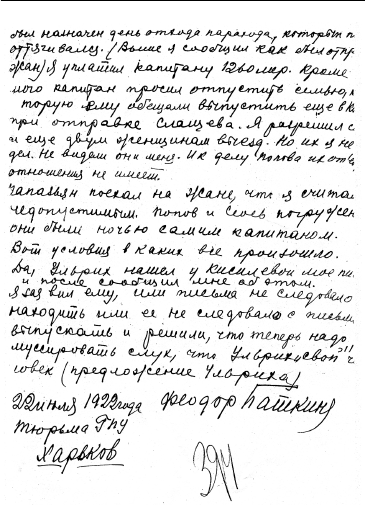 был назначен день отхода парохода, который п
оттягивалсь. (Выше я сообщил как был отпр
Жан) я уплатил капитану 120 лир. Кроме
того капитан просил отпустить семью, к
торую ему обещали выпустить еще в К
при отправке Слащева. Я разрешил с
и еще двум женщинам выезд. Но их я не
дел. Не видали они меня. И к делу Попова их от
отношения не имеет.
Чапавьян поехал на Жане, что я считал
недопустимым. Попов и погружен
они были ночью самим капитаном.
Вот условия в каких все произошло.
Да, Ульрих нашел у Киселевой мое пи
и после сообщил мне об этом.
Я заявил ему, или письма не следовало
находить или ее не следовало с письм
выпускать и решили, что теперь надо
муссировать слух, что Ульрих "свой ч
человек" (предложение Ульриха)
22 июля 1922 года Феодор Баткин
Тюрьма ГПУ
Харьков
394